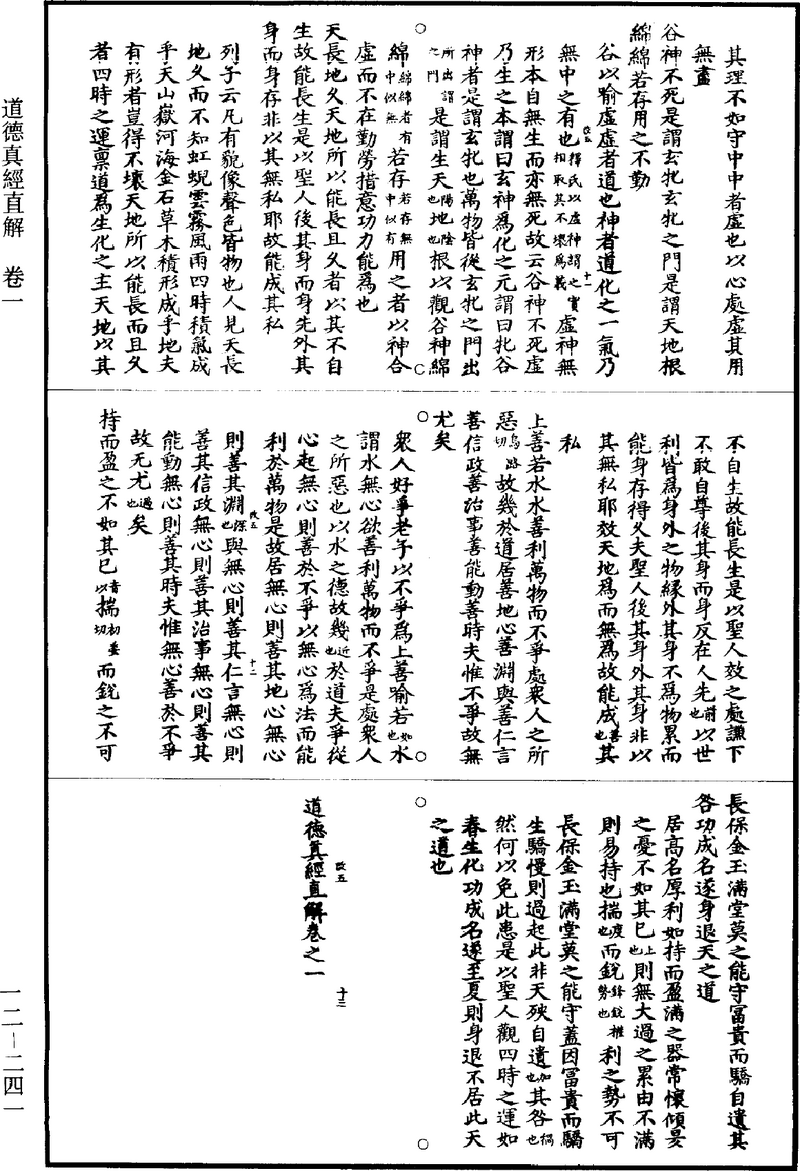 道德真經直解　卷一
一二－二四一
其理不如守中中者虛也以心處虛其用
無盡
谷神不死是謂玄牝玄牝之門是謂天地根
綿綿若存用之不勤
谷以喻虛虛者道也神者道化之一氣乃
無中之有也釋氏以虛神謂之實相取其不壞為義虛神無
改五　十一
形本自無生而亦無死故云谷神不死虛
乃生之本謂曰玄神為化之元謂曰牝谷
神者是謂玄牝也萬物皆從玄牝之門出
所出謂之門是謂生天陽也地陰也根以觀谷神綿
綿綿綿者有中似無若存若存無中似有用之者以神合
虛而不在勤勞措意功力能為也
天長地久天地所以能長且久者以其不自
生故能長生是以聖人後其身而身先外其
身而身存非以其無私耶故能成其私
列子云凡有貌像聲色皆物也人見天長
地久而不知虹蜺雲霧風雨四時積氣成
乎天山嶽河海金石草木積形成乎地夫
有形者豈得不壞天地所以能長而且久
者四時之運稟道為生化之主天地以其
不自生故能長生是以聖人效之處謙下
不敢自尊後其身而身反在人先前也以世
利皆為身外之物緣外其身不為物累而
能身存得久夫聖人後其身外其身非以
其無私耶效天地為而無為故能成善也其
私
上善若水水善利萬物而不爭處衆人之所
惡烏路切故幾於道居善地心善淵與善仁言
善信政善治事善能動善時夫惟不爭故無
尤矣
衆人好爭老子以不爭為上善喻若如也水
謂水無心欲善利萬物而不爭是處衆人
之所惡也以水之德故幾近也於道夫爭從
心起無心則善於不爭以無心為法而能
利於萬物是故居無心則善其地心無心
改五　十二
則善其淵深也與無心則善其仁言無心則
善其信政無心則善其治事無心則善其
能動無心則善其時夫惟無心善於不爭
故无尤過也矣
持而盈之不如其已音以揣初委切而銳之不可
長保金玉滿堂莫之能守富貴而驕自遺其
咎功成名遂身退天之道
居高名厚利如持而盈滿之器常懷傾晃
之憂不如其已上也則無大過之累由不滿
則易持也揣度也而銳鋒銳推勢也利之勢不可
長保金玉滿堂莫之能守蓋因富貴而驕
生驕慢則過起此非天殃自遺加也其咎禍也
然何以免此患是以聖人觀四時之運如
春生化功成名遂至夏則身退不居此天
之道也
改五　十三
道德真經直解卷之一